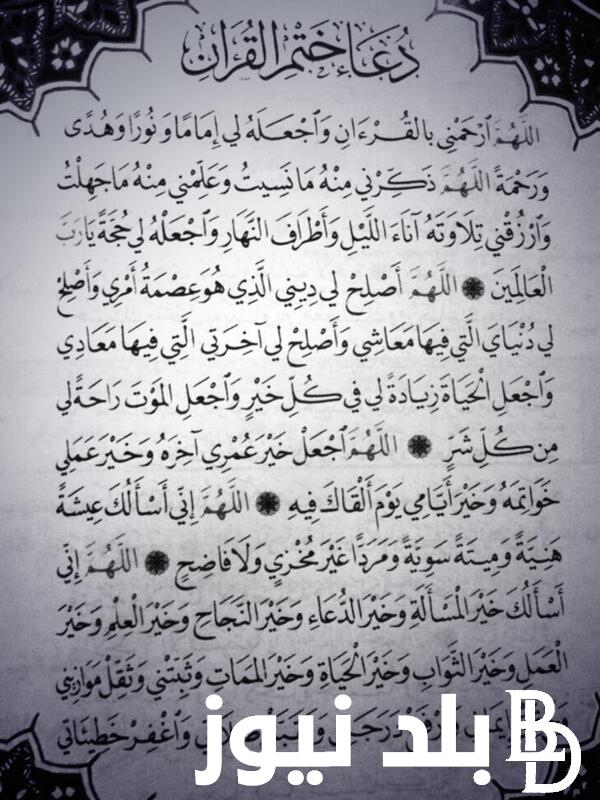 دُعَاءُ خَتْمِ القُرْآنِ
اللَّهُمَّ ٱرْحَمْنِي بالقُـرْءَانِ وَٱجْعَلهُ لي إِمَامًا وَنُورًا وَهُدًى
وَرَحْمَةً اللَّهُمَّ ذَكِّرْني مِنْهُ مَانَسِيتُ وَعَلِّمْني مِنْهُ مَاجَهِلْتُ
وَٱرْزُقْني تِلَاوَتَهُ آنَاءَ اللَّيْلِ وَأَطْرَافَ النَّهَارِ وَٱجْعَلْهُ لي حُجَّةً يَارَبَّ
العَالَمِينَ ۞ اللَّهُمَّ أَصْلِحْ لي دِيني الَّذِي هُوَ عِصْمَةُ أَمْرِي وَأَصْلِحْ
لي دُنْيَايَ الَّتي فِيهَا مَعَاشِي وَأَصْلِحْ لي آخِرَتي الَّتي فِيهَا مَعَادِي
وَٱجْعَلِ الحَيَاةَ زِيَادَةً لي في كُلِّ خَيْرٍ وَٱجْعَلِ المَوْتَ رَاحَةً لي
مِن كُلِّ شَرٍّ ۞ اللَّهُمَّ ٱجْعَلْ خَيْرَ عُمْرِي آخِرَهُ وَخَيْرَ عَمَلي
خَوَاتِمَهُ وَخَيْرَ أَيَّامِي يَوْمَ أَلْقَاكَ فِيهِ ۞ اللَّهُمَّ إِنِّي أَسْأَلُكَ عِيشَةً
هَنِيَّةً وَمِيتَةً سَوِيَّةً وَمَرَدًّا غَيْرَ مُخْزِي وَلَا فَاضِحٍ ۞ اللَّهُمَّ إِنِّي
أَسْأَلُكَ خَيْرَ المَسْأَلَةِ وَخَيْرَ الدُّعَاءِ وَخَيْرَ النَّجَاحِ وَخَيْرَ العِلْمِ وَخَيْرَ
العَمَلِ وَخَيْرَ الثَّوَابِ وَخَيْرَ الحَيَاةِ وَخَيْرَ المَمَاتِ وَثَبِّتْني وَثَقِّلْ مَوَازِيني
وَٱغْفِرْ خَطِيئَاتي
بلد نيوز
BLD